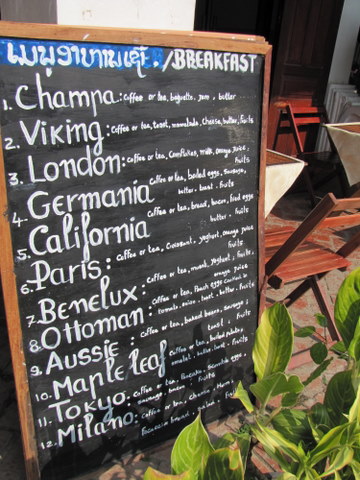 ເມນູອາຫານເຊົ້າ. / BREAKFAST
1. Champa: Coffee or tea, baguette, jam, butter
2. Viking: Coffee or tea, toast, mamalade, Cheese, butter, fruits
3. London: Coffee or tea, Cornflakes, milk, orange juice, fruits
4. Germania Coffee or tea, boiled eggs, Sausage, butter, toast, fruits
5. California Coffee or tea, bread, bacon, fried eggs butter, fruits
6. Paris: Coffee or tea, Croissant, yoghurt, orange juice fruits
7. Benelux: Coffee or tea, yoghurt, fruits, orange juice
8. Ottoman: Coffee or tea, eggs tomato, toast, butter, fruits
9. Aussie: Coffee or tea, baked beans, sausage, toast, fruits
10. Maple leaf Coffee or tea, potatoes, toast, fruits
11. Tokyo: Coffee or tea, eggs, sausage, bacon, fruits
12. Milano: Coffee or tea, Cheese, bread, fruits